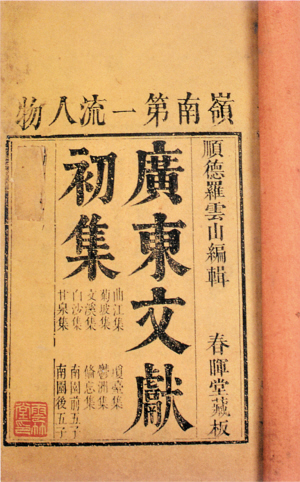 嶺南第一流人物
順德羅雲山編輯
春暉堂藏板
廣東文獻
初集
曲江集
菊坡集
文溪集
白沙集
甘泉集
瓊臺集
鬱洲集
俻忘集
南園前五子
南園後五子